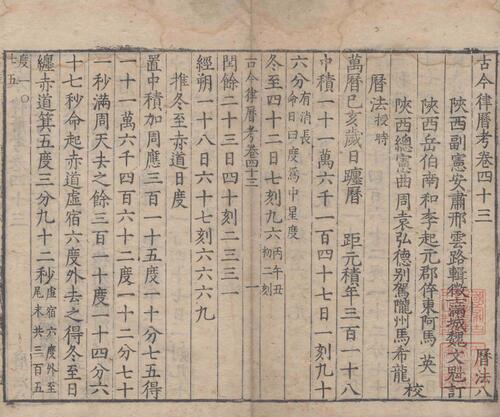 古今律曆考卷四十三 曆法八
陝西副憲安肅邢雲路輯徵滿城魏文魁訂
陝西岳伯南和李起元郡倅東阿馬英
陝西總憲曲周袁弘德別駕隴州馬希龍 校
曆法授時
萬曆己亥歲日躔曆 距元積年三百一十八
中積一十一萬六千一百四十七日一刻九十
六分有消長命日日度為中星度
冬至四十二日七刻九六丙午丑初二刻
古今律曆考卷四十三 一
閏餘二十三日四十刻二三三一
經朔一十八日六十七刻六六六九
推冬至赤道日度
置中積加周應三百一十五度一十分七五得
一十一萬六千四百六十二度一十二分七十
一秒滿周天去之餘三百一十度一十四分六
十七秒命起赤道虛宿六度外去之得冬至日
躔赤道箕五度三分九十二秒虛宿六度外至尾末共三百五
度一〇七五